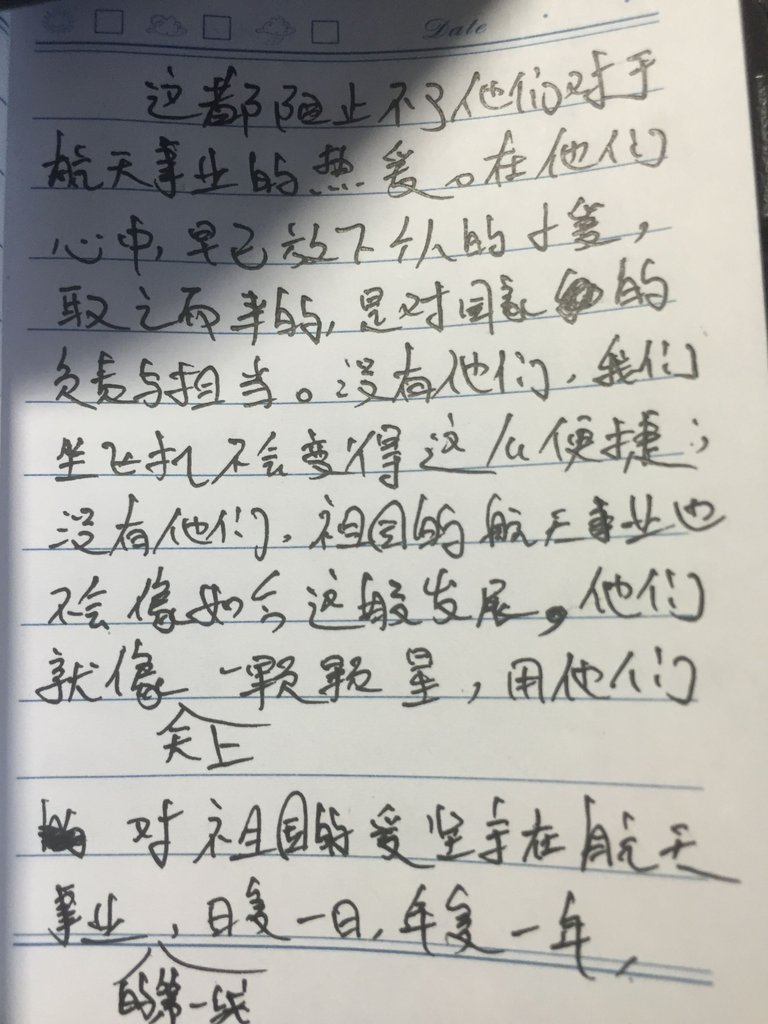 Date
这都阻止不了他们对于
航天事业的热爱。在他们
心中,早已放下个人的
取之而来的,是对国家的
负责与担当。没有他们,我们
坐飞机不会变得这么便捷;
没有他们,祖国的航天事业也
不会像如今这般发展。他们
就像一颗颗星,用他们
天上
对祖国的爱坚守在航天
事业,日复一日,年复一年,
的第一线